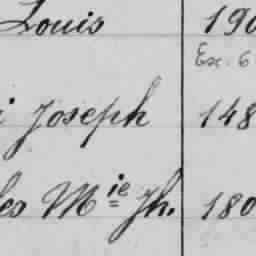 Louis 190
Ex. 6
i Joseph 148
les Mie Jh. 180